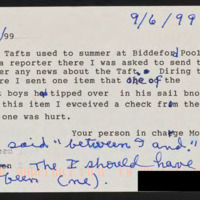 9/6/99
/99
Tafts used to summer at Biddeford Pool
a reporter there I was asked to send t
er any news about the Taft. Diring t
re I sent one item that one of the
t boys had tipped over in his sail bno
this item I exceived a check from the
one was hurt.
Your person in charge Mo
said "between I and."
The I should have
been (me).